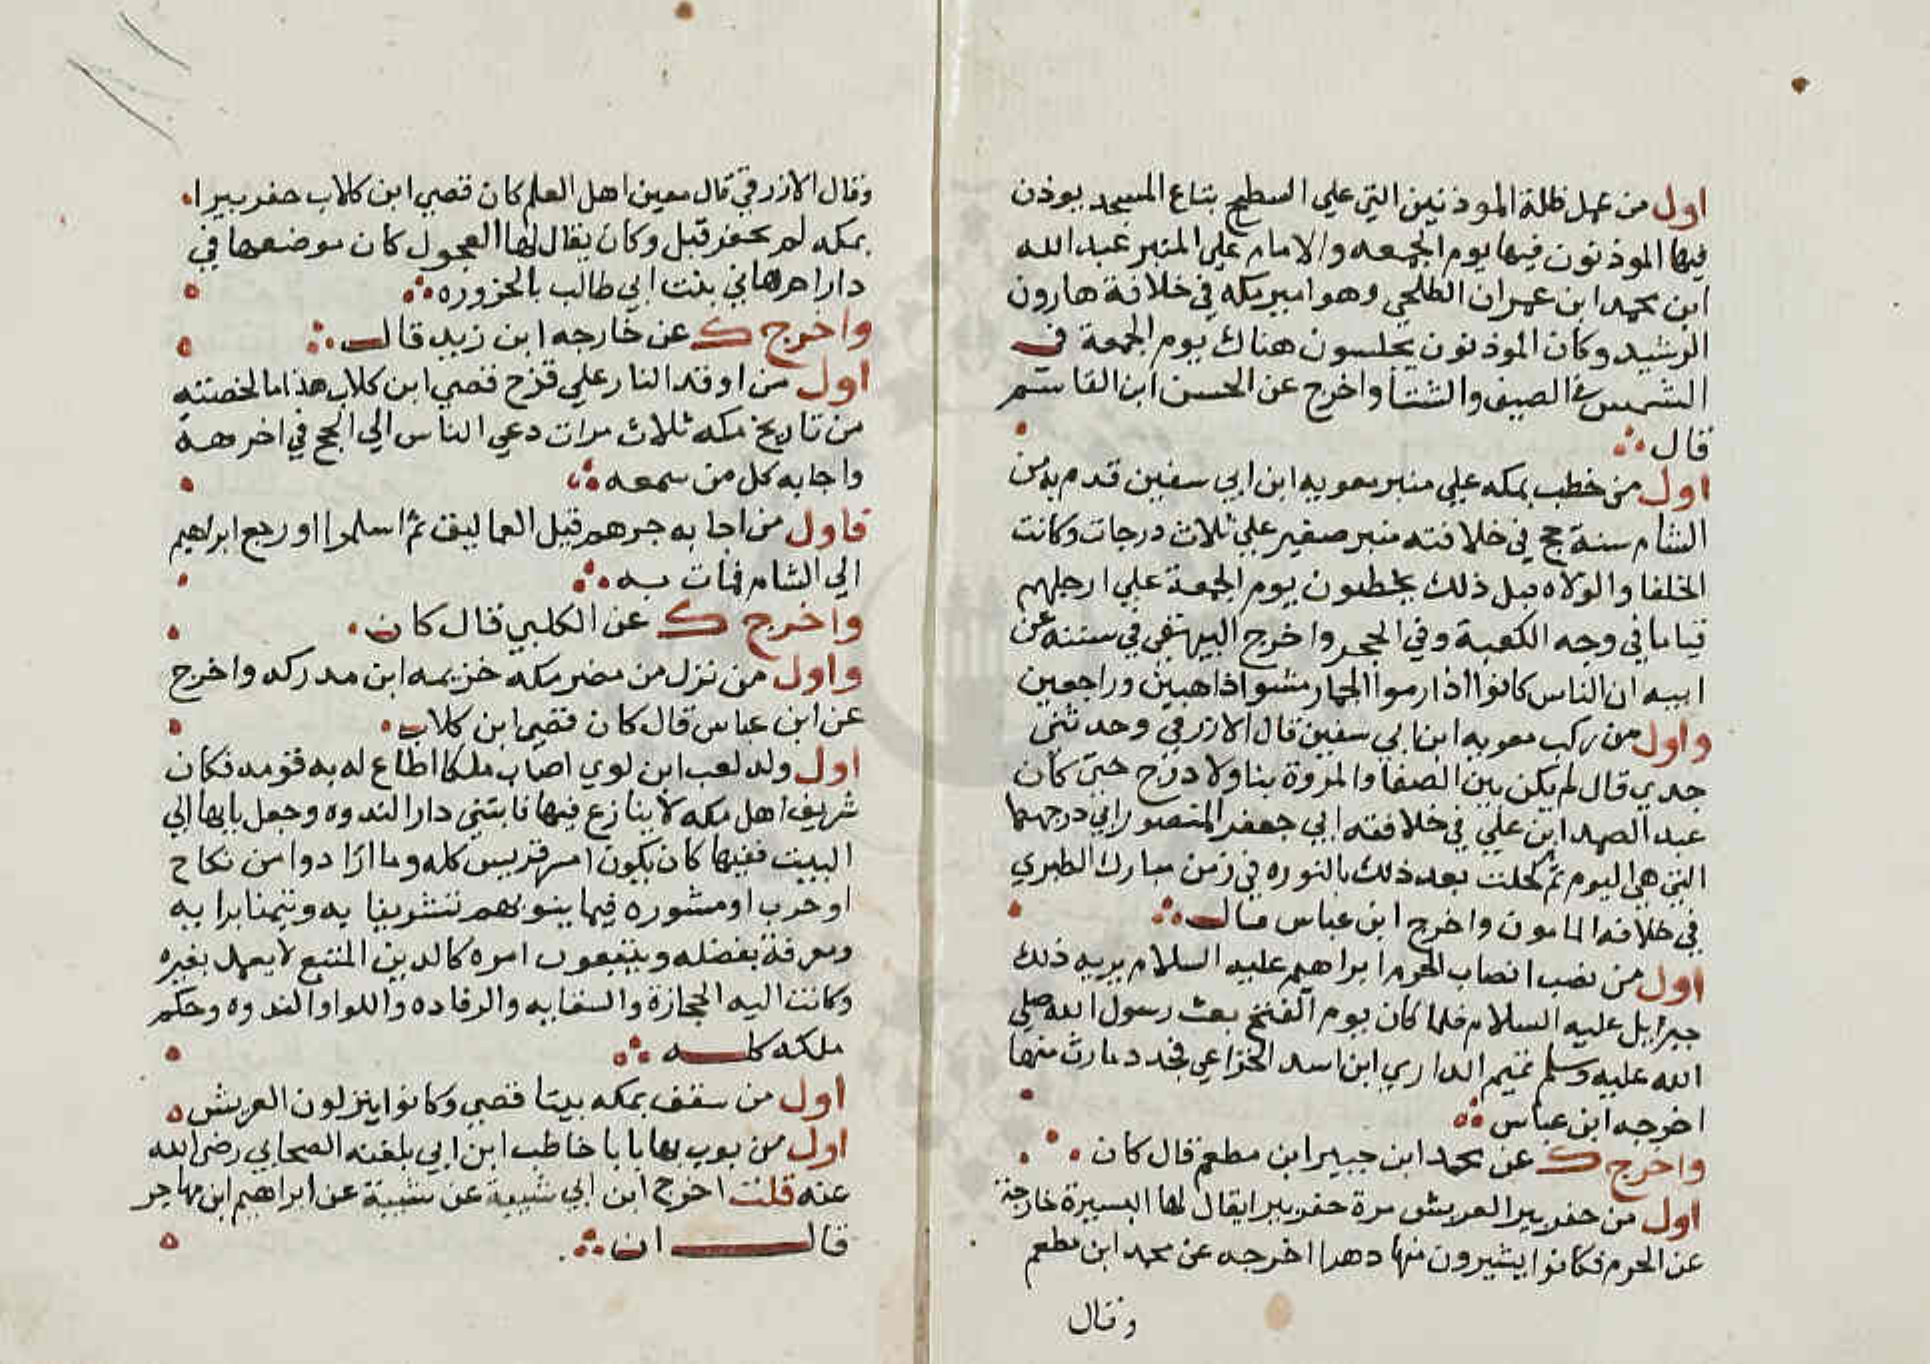 اول من عمل ظلة الموذنين التي علي السطح بتاع المسجد يوذن
فيها الموذنون فيها يوم الجمعه والامام علي المنبر عبد الله
ابن محمد ابن عمران الطلحي وهو امير مكه في خلافة هارون
الرشيد وكان الموذنون يجلسون هناك يوم الجمعة في
الشمس في الصيف والشتا واخرج عن الحسن ابن القاسم
قال
اول من خطب بمكه علي منبر معويه ابن ابي سفين قدم به من
الشام سنة حج في خلافته منبر صغير علي ثلاث درجات وكانت
الخلفا والولاه قبل ذلك يخطبون يوم الجمعة علي ارجلهم
قياما في وجه الكعبة وفي الحجر واخرج البيهقي في سننه عن
ابيه ان الناس كانوا اذا رموا الجمار مشوا ذاهبين وراجعين
واول من ركب معويه ابن ابي سفين قال الازرقي وحدثني
جدي قال لم يكن بين الصفا والمروة بنا ولا درج حتي كان
عبد الصمد ابن علي في خلافته ابي جعفر المنصور ابي درجهما
التي هي اليوم ثم كحلت بعد ذلك بالنوره في زمن مبارك الطبري
في خلافه المامون واخرج ابن عباس قال
اول من نصب انصاب الحرم ابراهيم عليه السلام يريه ذلك
جبرايل عليه السلام فلما كان يوم الفتح بعث رسول الله صلي
الله عليه وسلم تميم الداري ابن اسد الخزاعي فجدد مارث منها
اخرجه ابن عباس
واخرج ك عن محمد ابن جبير ابن مطعم قال كان
اول من حفر بير العريش مرة حفر بيرا يقال لها اليسيرة خارجة
عن الحرم فكانوا يشيرون منها دهرا اخرجه عن محمد ابن مطعم
وقال
وقال الازرقي قال معين اهل العلم كان قصي ابن كلاب حفر بيرا
بمكه لم يحفر قبل وكان يقال لها العجول كان موضعها في
دار ام هاني بنت ابي طالب بالحزوره
واخرج ك عن خارجه ابن زيد قال
اول من اوقد النار علي قزح قصي ابن كلاب هذا ما لخصته
من تاريخ مكه ثلاث مرات دعي الناس الي الحج في اخرهة
واجابه كل من سمعه
فاول من اجابه جرهم قبل العماليق ثم اسلموا او رجع ابراهيم
الي الشام فمات به
واخرج ك عن الكلبي قال كان
واول من نزل من مضر مكه خزيمه ابن مدركه واخرج
عن ابن عباس قال كان قصي ابن كلاب
اول ولد لعب ابن لوي اصاب ملكا اطاع له به قومه فكان
شريف اهل مكه لا ينازع فيها فابتني دار الندوه وجعل بابها الي
البيت ففيها كان يكون امر قريس كله وما ارادوا من نكاح
او حرب او مشوره فيما ينوبهم تشريفا به وتيمنا برايه
ومعرفة بفضله ويتبعون امره كالدين المتبع لا يعمل بغيره
وكانت اليه الحجازة والسقايه والرفاده واللوا والندوه وحكم
ملكه كله
اول من سقف بمكه بيتا قصي وكانوا ينزلون العريش
اول من بوب بها بابا خاطب ابن ابي بلغته الصحابي رضي الله
عنه قلت اخرج ابن ابي شيبة عن شيبة عن ابراهيم ابن مهاجر
قال ان